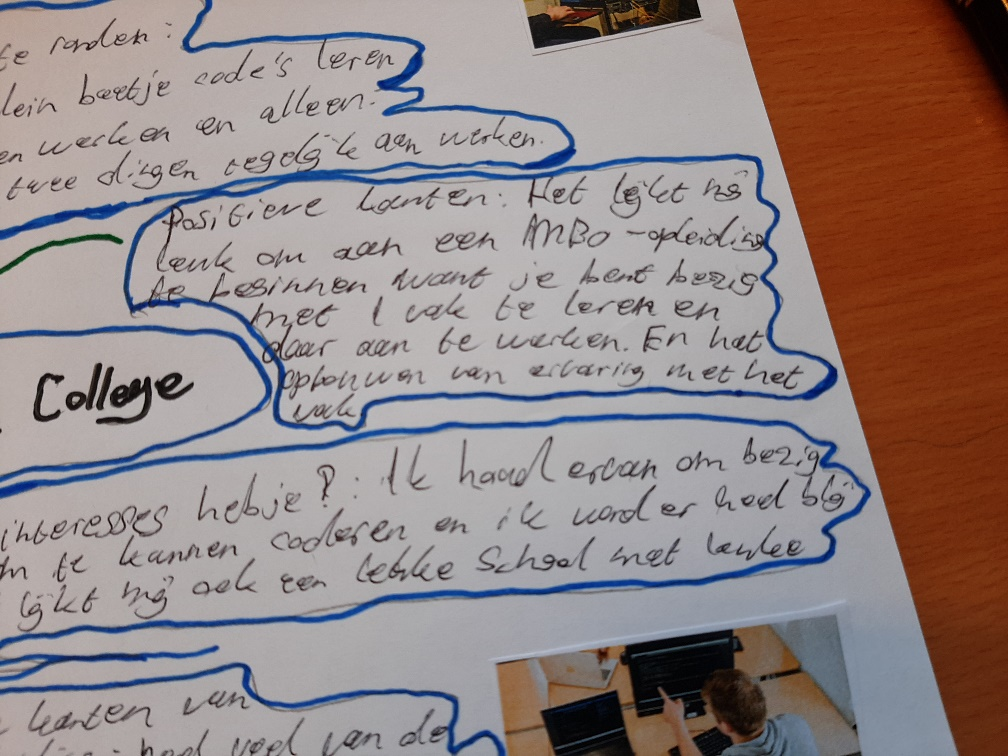 te ronden:
lein beetje code's leren
en werken en alleen.
twee dingen tegelijk aan werken.
Positieve kanten: Het lijkt mij
leuk om aan een MBO-opleiding
te beginnen want je bent bezig
met 1 vak te leren en
daar aan te werken. En het
opbouwen van ervaring met het
vak
College
interesses heb je?: Ik houd ervan om bezig
m te kunnen coderen en ik word er heel blij
lijkt mij ook een leuke School met leuke
kanten van
heel veel van de